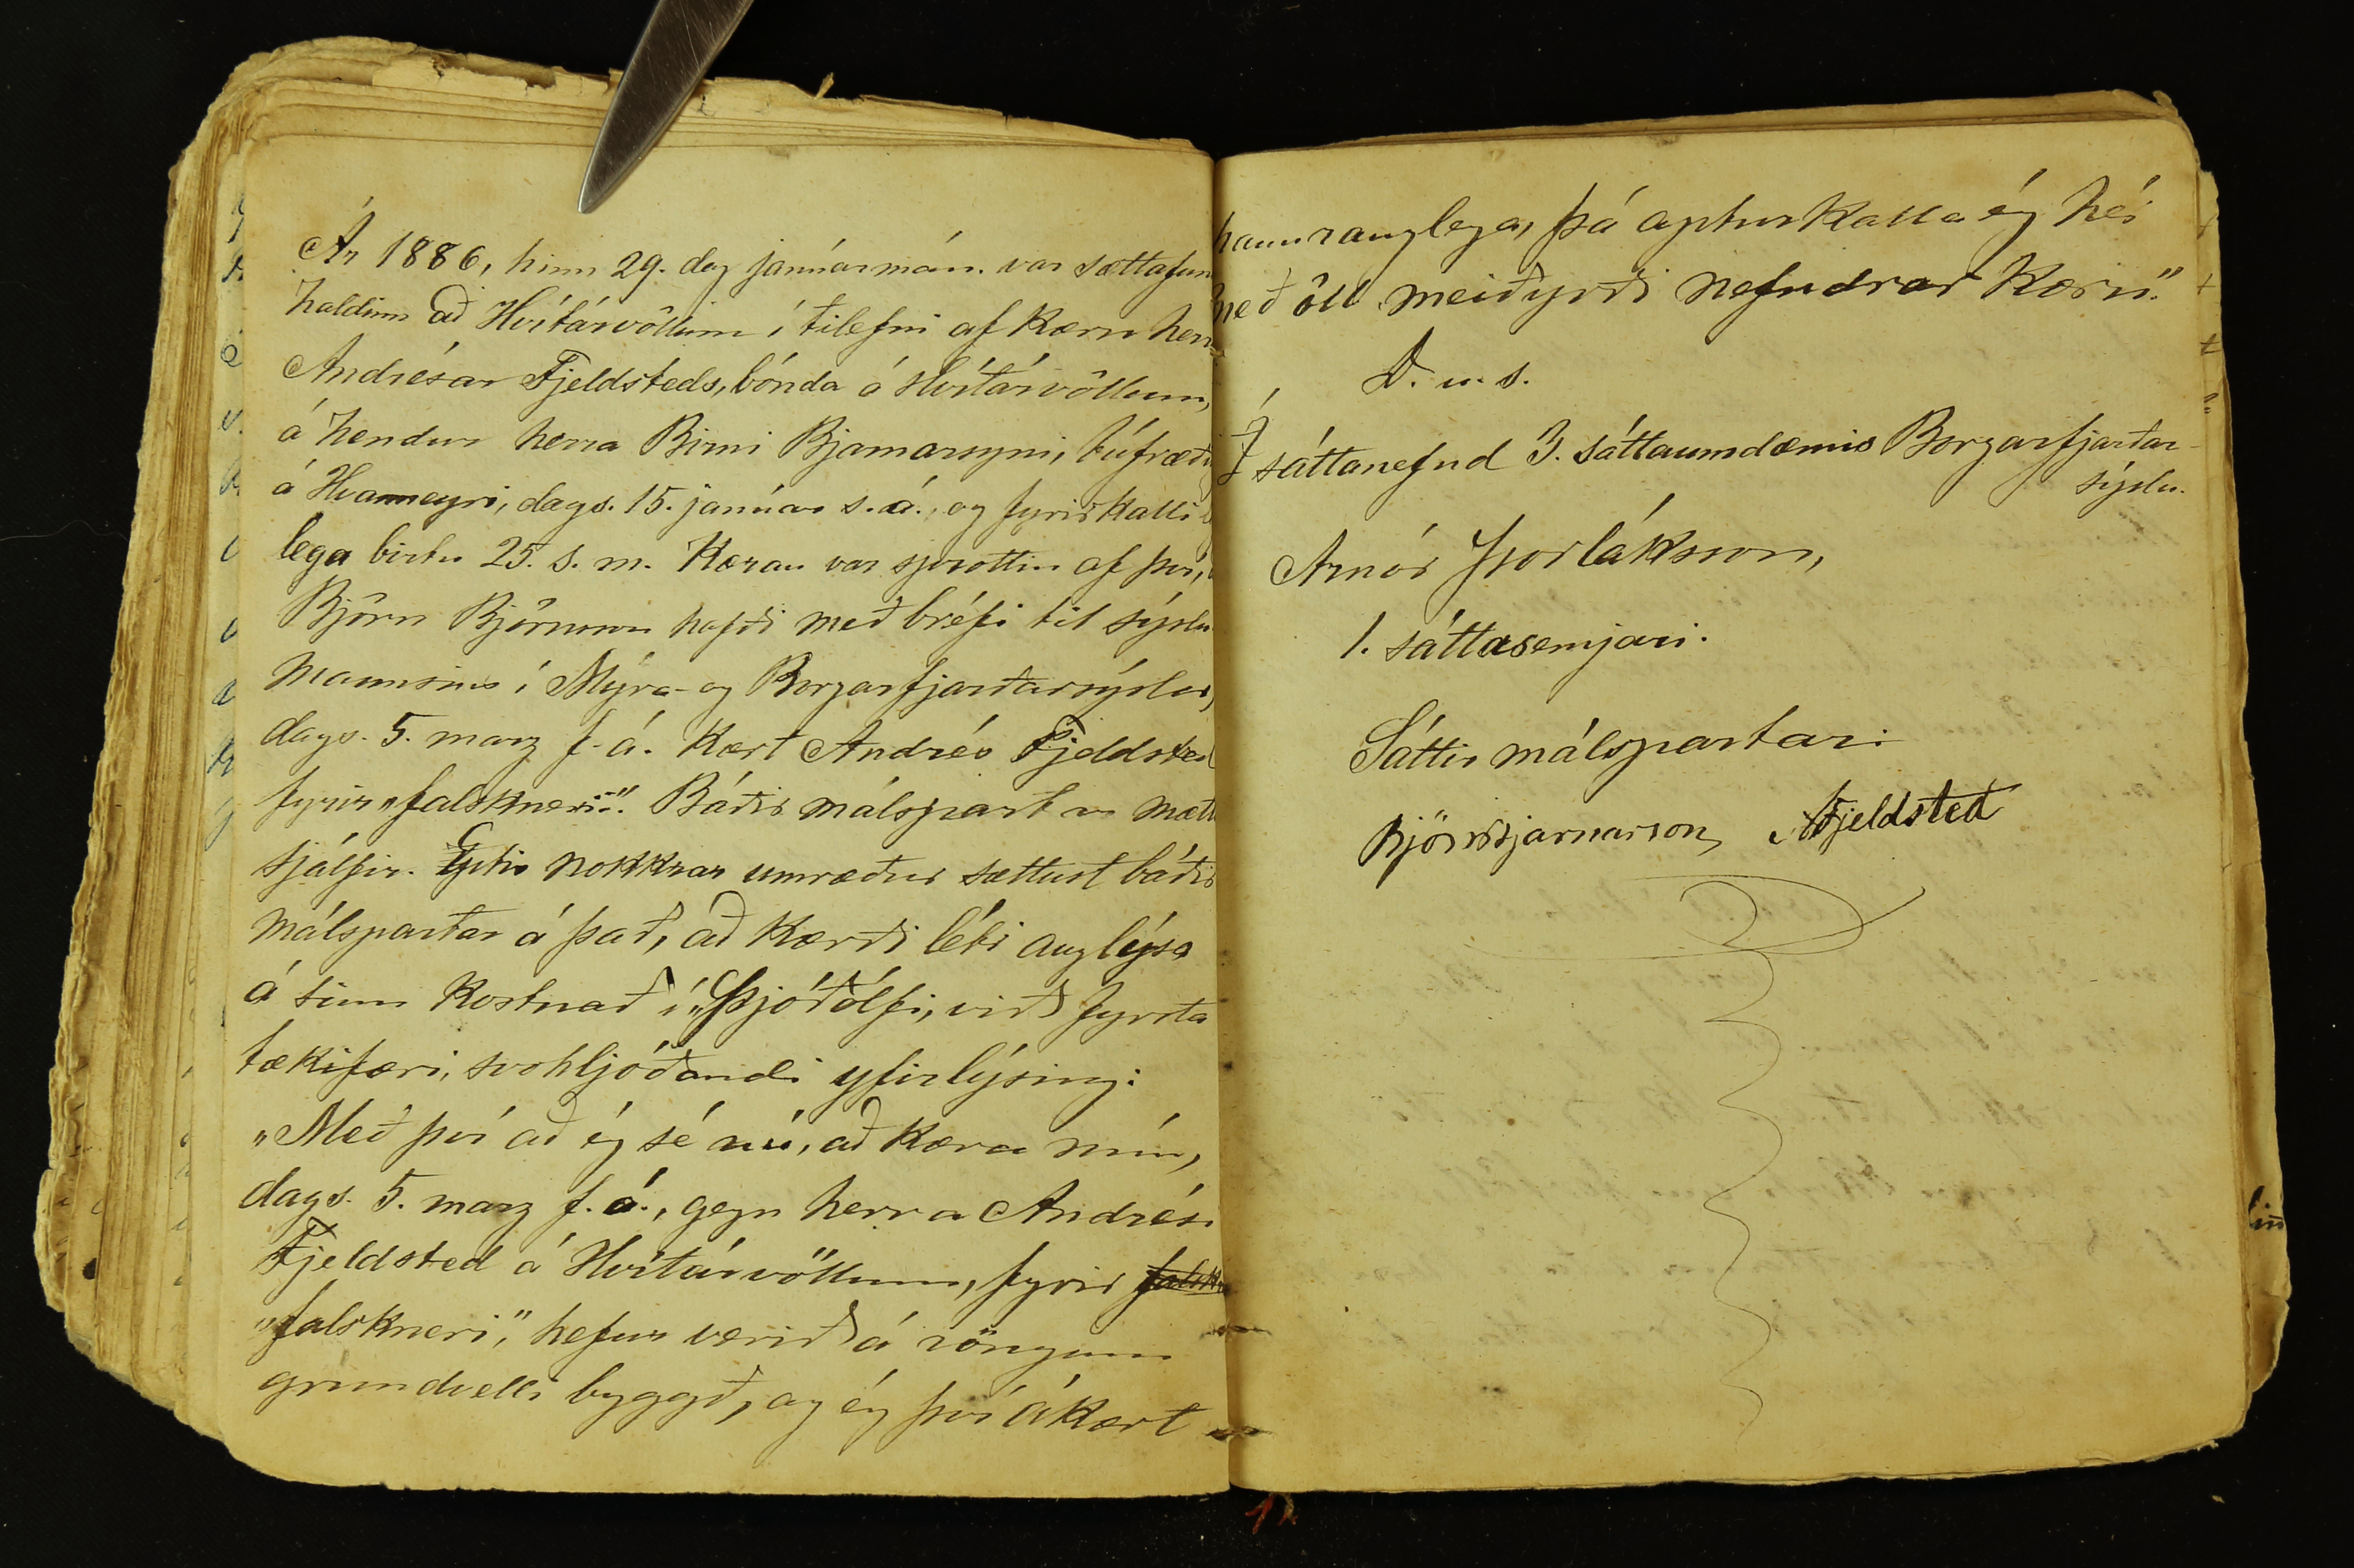 Ár 1886, hinn 29. dag janúarmán. var sættafun
haldinn að Hvítárvöllum í tilefni af kæru herr
Andrésar Fjeldsteds, bónda á Hvítárvöllum,
á hendur herra Birni Bjarnarsyni, búfræði
á Hvanneyri, dags. 15. janúar s. á., og fyrirkalli
lega birtu 25. s. m. Kæran var sprottin af því,
Björn Björnsson hafði með bréfi til sýslu
mannsins í Mýra- og Borgarfjarðarsýslu,
dags. 5. marz f. á. kært Andrés Fjeldsted
fyrir „falskneri“. Báðir málspartar mættu
sjálfir. Eptir nokkrar umræður sættust báðir
málspartar á það, að kærði léti auglýsa
á sinn kostnað í „Þjóðólfi, við fyrsta
tækifæri, svohljóðandi yfirlýsing:
„Með því að ég sé nú, að kæra mín,
dags. 5. marz f. á., gegn herra Andrési
Fjeldsted á Hvítárvöllum, fyrir falskn
„falskneri“, hefur verið á röngum
grundvelli byggð, og ég því ákært
hann ranglega, þá apturkalla ég hér
með öll meiðyrði nefndrar kæru.“
D. u. s.
Í sáttanefnd 3. sáttaumdæmis Borgarfjarðar-
sýslu.
Arnór Þorláksson,
1. sáttasemjari.
Sáttir málspartar:
Björn Bjarnarson, AFjeldsted